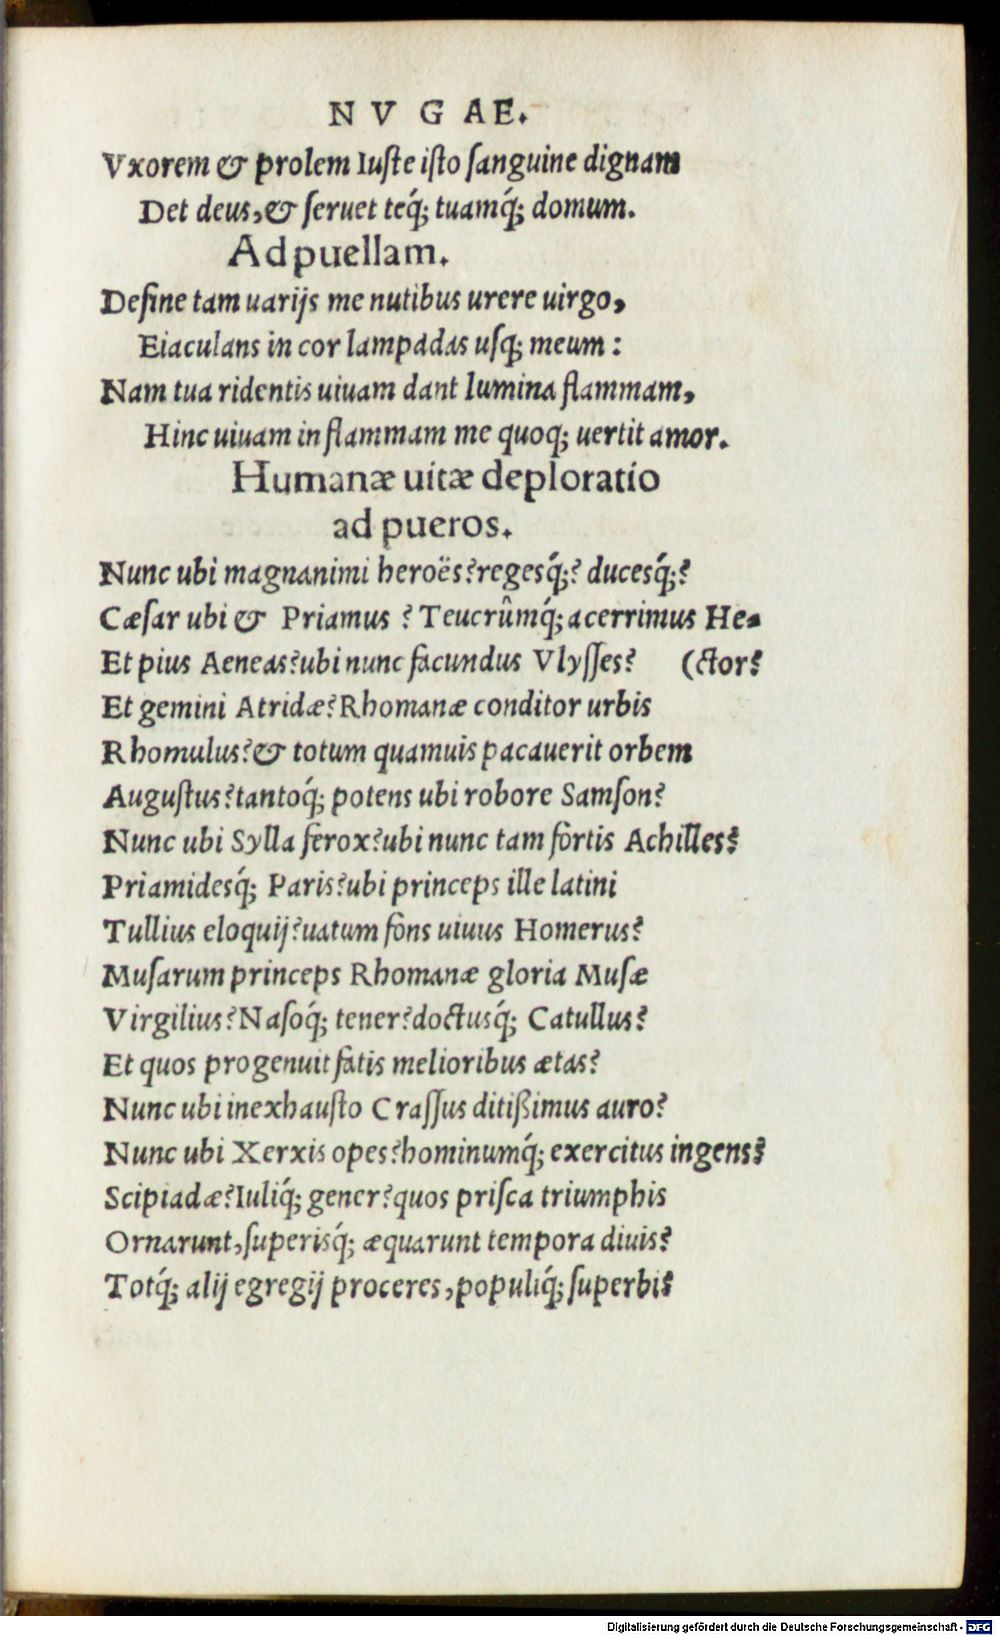 NVGAE.
Vxorem & prolem Iuste isto sanguine dignam
Det deus, & seruet teq́; tuamq́; domum.
Ad puellam.
Define tam uarijs me nutibus urere uirgo,
Eiaculans in cor lampadas usq; meum :
Nam tua ridentis uiuam dant lumina flammam,
Hinc uiuam in flammam me quoq; uertit amor.
Humanæ uitæ deploratio
ad pueros.
Nunc ubi magnanimi heroës? regesq́;? ducesq́;?
Cæsar ubi & Priamus ? Teucrûmq́; acerrimus He-
Et pius Aeneas? ubi nunc facundus Vlysses? (ctor?
Et gemini Atridæ? Rhomanæ conditor urbis
Rhomulus? & totum quamuis pacauerit orbem
Augustus? tantoq́; potens ubi robore Samson?
Nunc ubi Sylla ferox? ubi nunc tam fortis Achilles?
Priamidesq́; Paris? ubi princeps ille latini
Tullius eloquij? uatum fons uiuus Homerus?
Musarum princeps Rhomanæ gloria Musæ
Virgilius? Nasoq́; tener? doctusq́; Catullus?
Et quos progenuit fatis melioribus ætas?
Nunc ubi inexhausto Crassus ditißimus auro?
Nunc ubi Xerxis opes? hominumq́; exercitus ingens?
Scipiadæ? Iuliq́; gener? quos prisca triumphis
Ornarunt, superisq́; æquarunt tempora diuis?
Totq́; alij egregij proceres, populiq́; superbi?
Digitalisierung gefördert durch die Deutsche Forschungsgemeinschaft - DFG